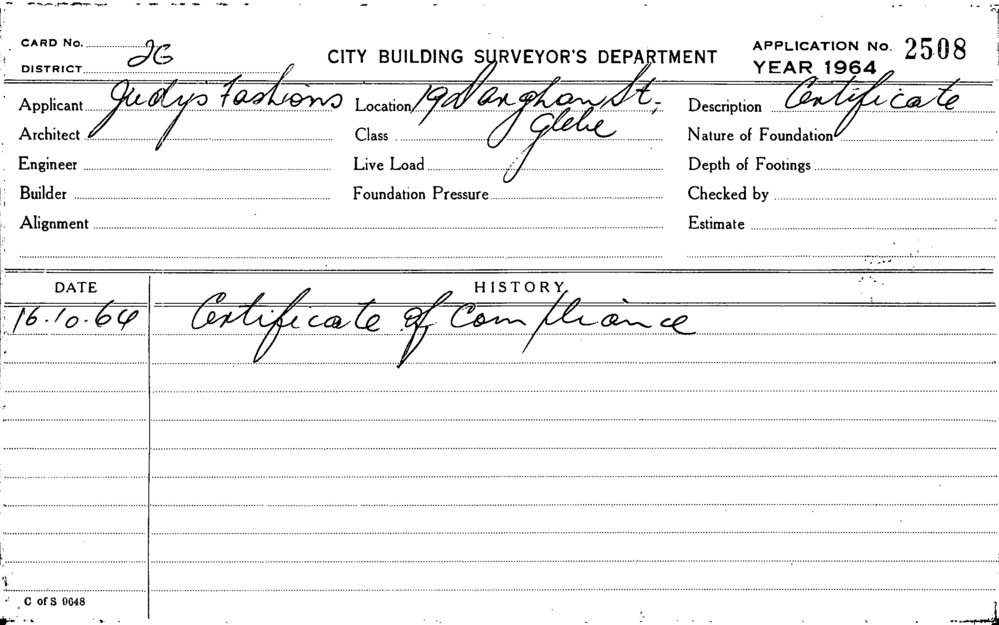 CARD No.
DISTRICT 2G
CITY BUILDING SURVEYOR'S DEPARTMENT
APPLICATION No. 2508
YEAR 1964
Applicant Judys Fashions
Location St. Glebe
Description Certificate
Architect
Class
Nature of Foundation
Engineer
Live Load
Depth of Footings
Builder
Foundation Pressure
Checked by
Alignment
Estimate
DATE
HISTORY
16.10.64 Certificate of Compliance
C of S 9648